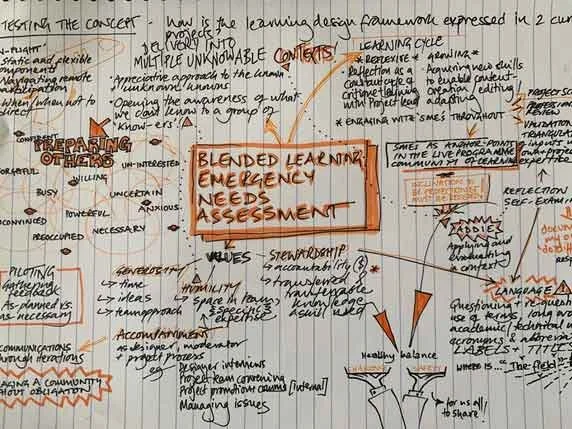 TESTING THE CONCEPT - how is the learning design framework expressed in 2 cur
projects,
DELIVERY INTO
MULTIPLE UNKNOWABLE CONTEXTS!
N-FLIGHT'
Static and flexible
components
Navigating remote
When/when not to
direct
· Appreciative approach to the known
unknown knowns
· Opening the awareness of what
we don't know to a group of
'Know-ers'
LEARNING CYCLE
* REFLEXIVE * GROWING *
Reflection as a
constant cycle of
with Project lead
· Acquiring new skills
to enable content
creation / editing
adapting
* ENGAGING WITH 'SMES' THROUGHOUT
PROJECT SCO
PROFESSIONAL
REVIEW
VALIDATION
TRIANGULA
of inputs
expertise
SMES AS ANCHOR-POINT
IN THE LIVE PROGRAMME
COMMUNITY OF LEARNING
REFLECTION
SELF-EXAMI
ADDIE
Applying and
evaluating
a context
PREPARING
OTHERS
CONFIDENT
UN-INTERESTED
WILLING
BUSY
UNCERTAIN
ANXIOUS
POWERFUL
CONVINCED
NECESSARY
PREOCCUPIED
BLENDED LEARNING
EMERGENCY
NEEDS
ASSESSMENT
VALUES
GENEROSITY
time
ideas
team approach
HUMILITY
space in team
& specific
expertise
STEWARDSHIP
accountability ($)
transferred &
transferrable
knowledge
& skill need
PILOTING
Gathering
feedback
As-planned vs.
as necessary
COMMUNICATIONS
through iterations
ENGAGING A COMMUNITY
WITHOUT OBLIGATION
ACCOMPANIMENT
as designer, moderator
+ project process
eg
Designer interviews
Project team convening
Project promotions comms [internal]
Managing issues
Healthy balance
for us all
to share!
LANGUAGE
Questioning + re-questio
use of terms, long pro
academic/technical
acronyms & abbrevia
LABELS + TITLE
WHERE IS... "The field"